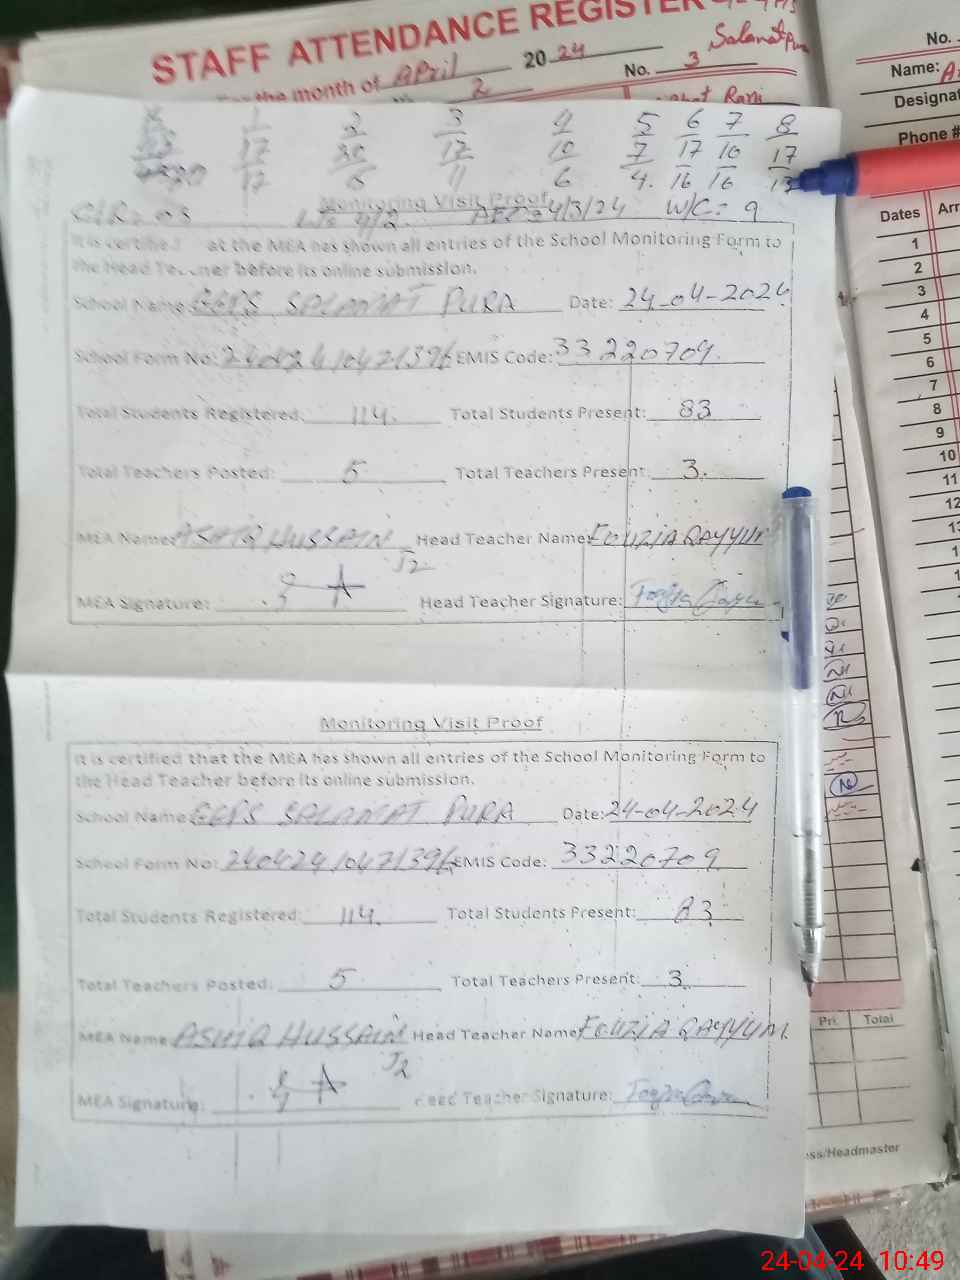 STAFF ATTENDANCE REGISTER
For the month of April 2024 No. 3 Salamat Pura
2
Rani
1 2 3 4 5 6 7 8
17 30 12 10 7 17 10 17
12 6 11 6 4. 16 16 13
Monitoring Visit Proof
4/2 4/3/24 W/C= 9
It is certified at the MEA has shown all entries of the School Monitoring Form to
the Head Teacher before its online submission.
School Name: GGPS SALAMAT PURA Date: 24-04-2024
School Form No: 24042410471396 EMIS Code: 33220709
Total Students Registered: 114. Total Students Present: 83
Total Teachers Posted: 5 Total Teachers Present: 3.
MEA Name: ASHIQ HUSSAIN Head Teacher Name: FOUZIA QAYYUM
J2
MEA Signature: Head Teacher Signature:
Monitoring Visit Proof
It is certified that the MEA has shown all entries of the School Monitoring Form to
the Head Teacher before its online submission.
School Name: GGPS SALAMAT PURA Date: 24-04-2024
School Form No: 24042410471396 EMIS Code: 33220709
Total Students Registered: 114. Total Students Present: 83
Total Teachers Posted: 5 Total Teachers Present: 3.
MEA Name ASHIQ HUSSAIN Head Teacher Name: FOUZIA QAYYUM.
J2
MEA Signature: Head Teacher Signature:
No.
Name: A
Designat
Phone #
Dates Arr
1
2
3
4
5
6
7
8
9
10
11
12
Pri. Total
ss/Headmaster
24-04-24 10:49